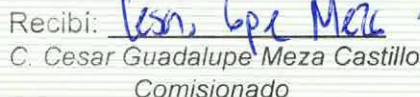 Recibí: Cesar Gpe Meza
C. Cesar Guadalupe Meza Castillo
Comisionado